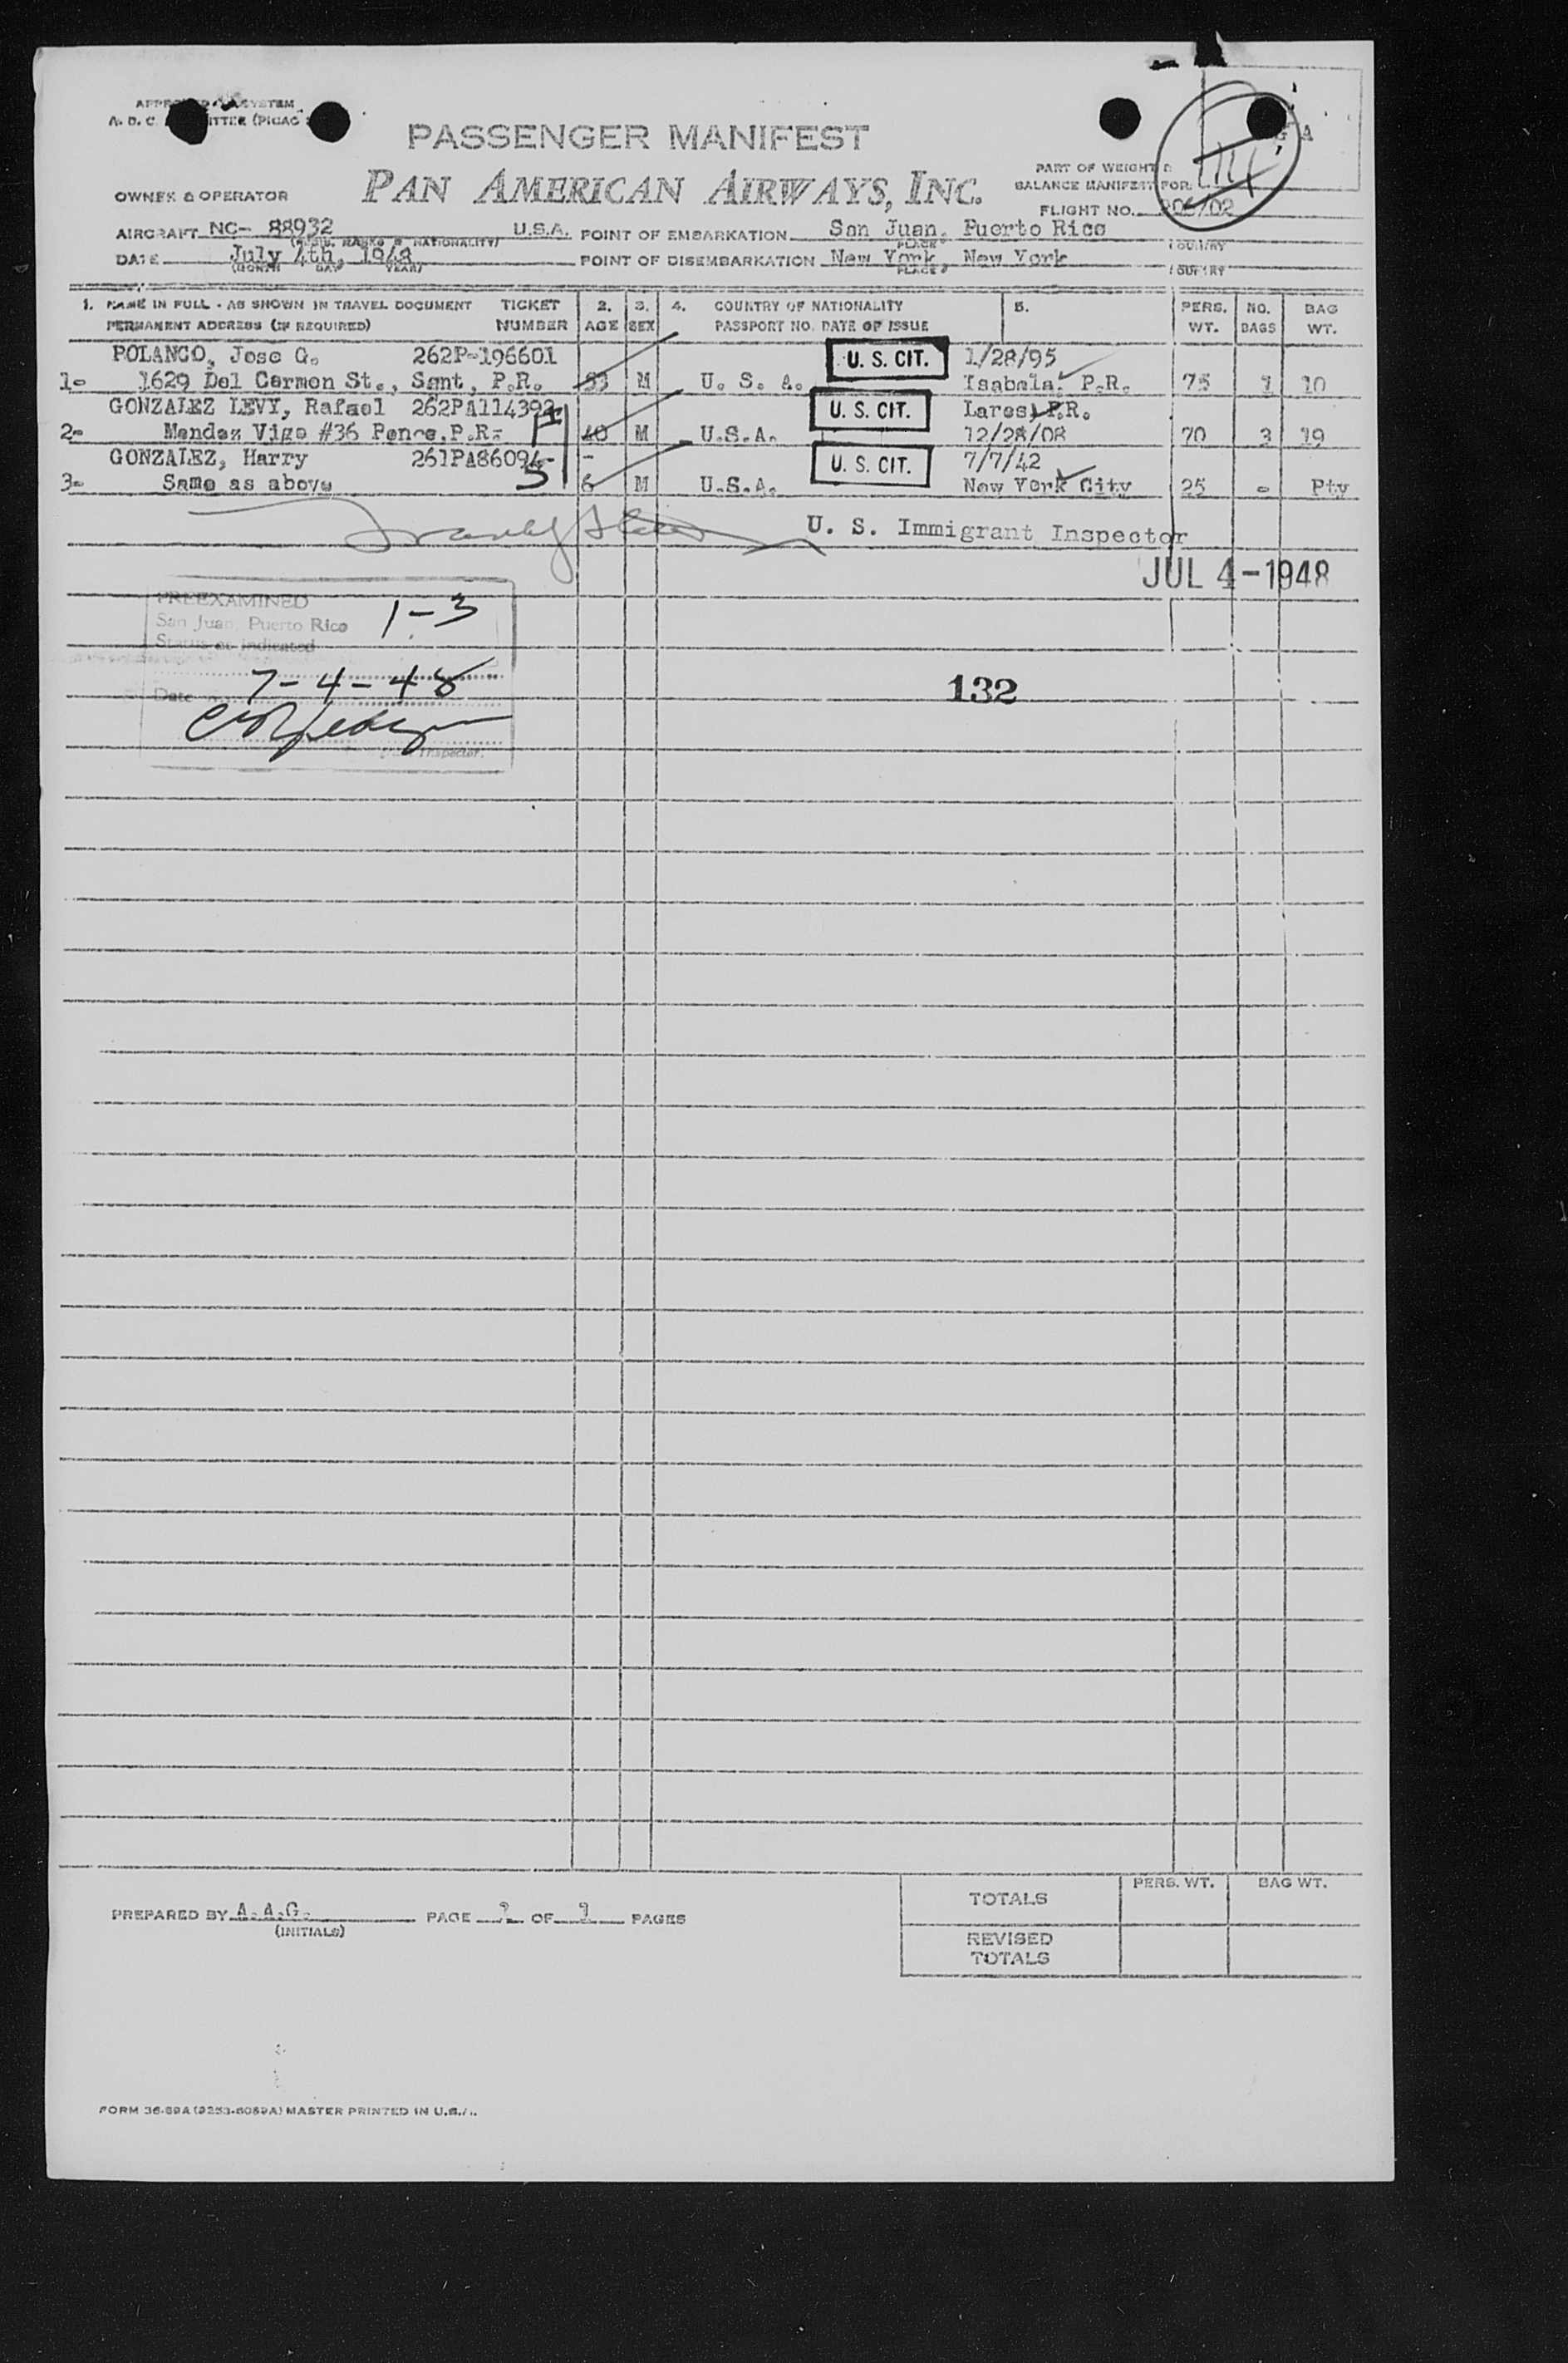 PASSENGER MANIFEST
OWNER & OPERATOR PAN AMERICAN AIRWAYS, INC.
PART OF WEIGHT &
BALANCE MANIFEST FOR
FLIGHT NO.
AIRCRAFT NC- 88932 U.S.A. POINT OF EMBARKATION San Juan, Puerto Rico
DATE July 4th, 1948 POINT OF DISEMBARKATION New York, New York
(MONTH DAY YEAR) PLACE
1. NAME IN FULL - AS SHOWN IN TRAVEL DOCUMENT TICKET 2. 3. 4. COUNTRY OF NATIONALITY 5. PERS. NO. BAG
PERMANENT ADDRESS (IF REQUIRED) NUMBER AGE SEX PASSPORT NO. DATE OF ISSUE WT. BAGS WT.
POLANCO, Jose G. 262P-196601 U. S. CIT. 1/28/95
1- 1629 Del Carmen St., Sant, P.R. 53 M U. S. A. Isabela, P.R. 75 1 10
GONZALEZ LEVY, Rafael 262PA114392 U. S. CIT. Lares, P.R.
2- Mendez Vigo #36 Ponce, P.R. 40 M U.S.A. 12/28/08 70 3 19
GONZALEZ, Harry 261PA86094 U. S. CIT. 7/7/42
3- Same as above 6 M U.S.A. New York City 25 - Pty
U. S. Immigrant Inspector
JUL 4-1948
PREEXAMINED
San Juan, Puerto Rico 1-3
Status as indicated
Date 7-4-48
132
Inspector.
TOTALS PERS. WT. BAG WT.
PREPARED BY A.A.G. PAGE OF PAGES
(INITIALS)
REVISED
TOTALS
MASTER PRINTED IN U.S.A.